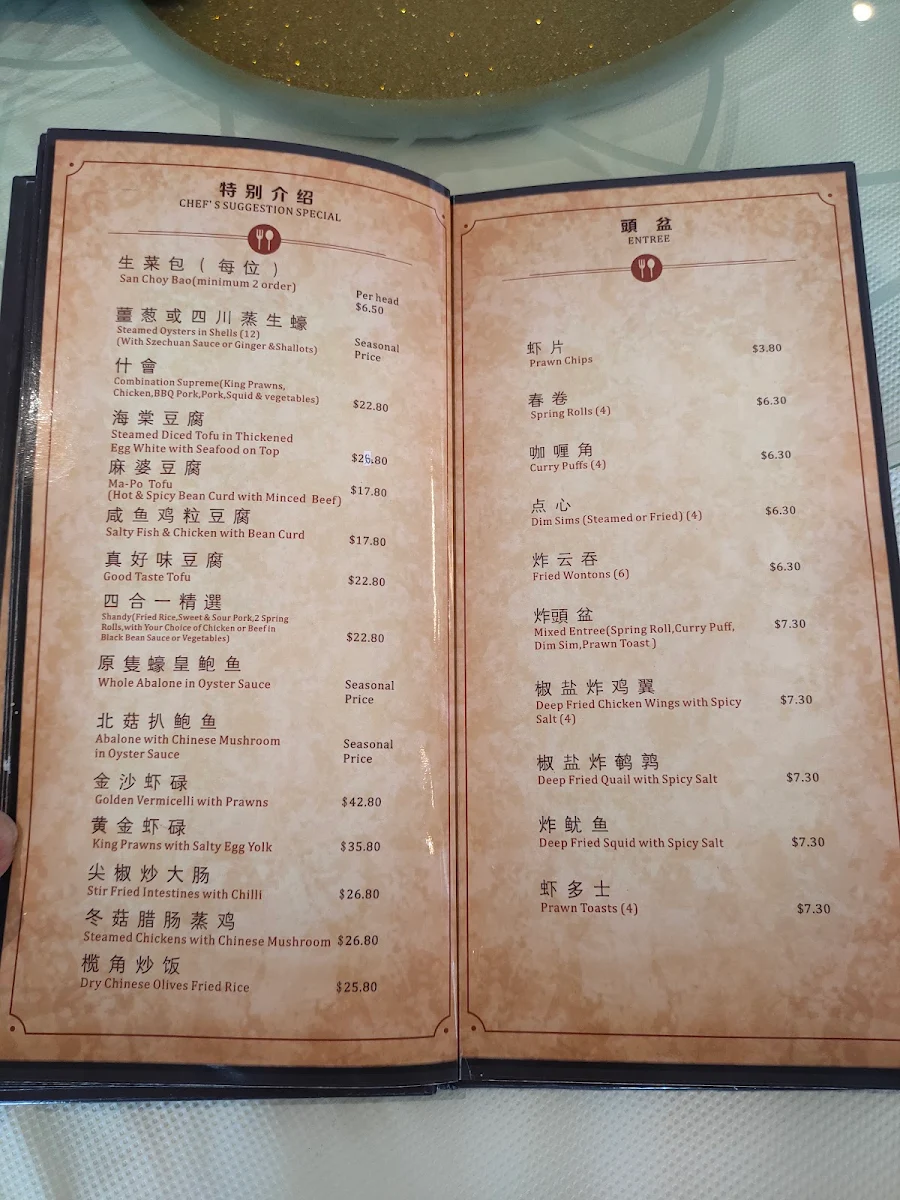 特别介绍
CHEF'S SUGGESTION SPECIAL
生菜包(每位)
San Choy Bao(minimum 2 order)
Per head
$6.50
薑葱或四川蒸生蠔
Steamed Oysters in Shells (12)
(With Szechuan Sauce or Ginger &Shallots)
Seasonal
Price
什會
Combination Supreme(King Prawns,
Chicken,BBQ Pork,Pork,Squid & vegetables)
$22.80
海棠豆腐
Steamed Diced Tofu in Thickened
Egg White with Seafood on Top
$26.80
麻婆豆腐
Ma-Po Tofu
(Hot & Spicy Bean Curd with Minced Beef)
$17.80
咸鱼鸡粒豆腐
Salty Fish & Chicken with Bean Curd
$17.80
真好味豆腐
Good Taste Tofu
$22.80
四合一精選
Shandy(Fried Rice,Sweet & Sour Pork,2 Spring
Rolls,with Your Choice of Chicken or Beef in
Black Bean Sauce or Vegetables)
$22.80
原隻蠔皇鲍鱼
Whole Abalone in Oyster Sauce
Seasonal
Price
北菇扒鲍鱼
Abalone with Chinese Mushroom
in Oyster Sauce
Seasonal
Price
金沙虾碌
Golden Vermicelli with Prawns
$42.80
黄金虾碌
King Prawns with Salty Egg Yolk
$35.80
尖椒炒大肠
Stir Fried Intestines with Chilli
$26.80
冬菇腊肠蒸鸡
Steamed Chickens with Chinese Mushroom
$26.80
榄角炒饭
Dry Chinese Olives Fried Rice
$25.80
頭盆
ENTREE
虾片
Prawn Chips
$3.80
春卷
Spring Rolls (4)
$6.30
咖喱角
Curry Puffs (4)
$6.30
点心
Dim Sims (Steamed or Fried) (4)
$6.30
炸云吞
Fried Wontons (6)
$6.30
炸頭盆
Mixed Entree(Spring Roll,Curry Puff,
Dim Sim,Prawn Toast )
$7.30
椒盐炸鸡翼
Deep Fried Chicken Wings with Spicy
Salt (4)
$7.30
椒盐炸鹌鹑
Deep Fried Quail with Spicy Salt
$7.30
炸鱿鱼
Deep Fried Squid with Spicy Salt
$7.30
虾多士
Prawn Toasts (4)
$7.30